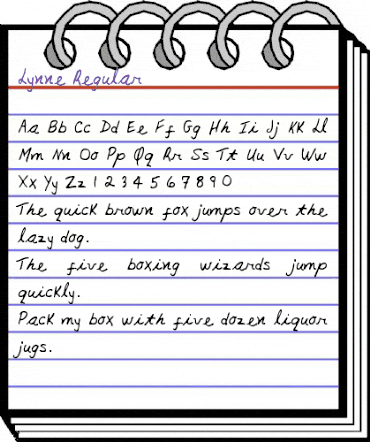 Lynne Regular
Aa Bb Cc Dd Ee Ff Gg Hh Ii Jj KK Ll
Mm Nn Oo Pp Qq Rr Ss Tt Uu Vv Ww
Xx Yy Zz 1 2 3 4 5 6 7 8 9 0
The quick brown fox jumps over the
lazy dog.
The five boxing wizards jump
quickly.
Pack my box with five dozen liquor
jugs.